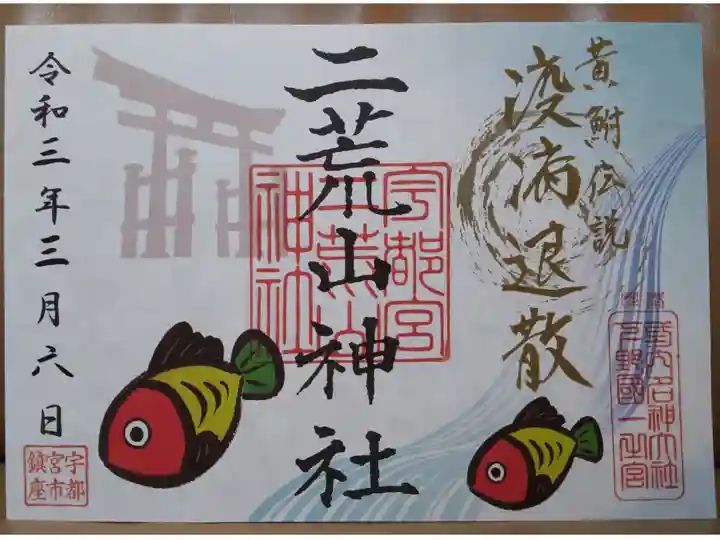 黄鮒伝説
疫病退散
二荒山神社
宇都宮
二荒山
神社
下野國一之宮
令和三年三月六日
宇都
宮市
鎮座